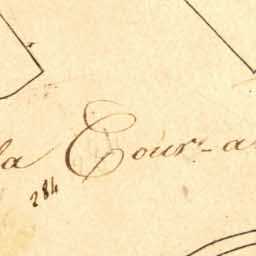 la Cour-a
284